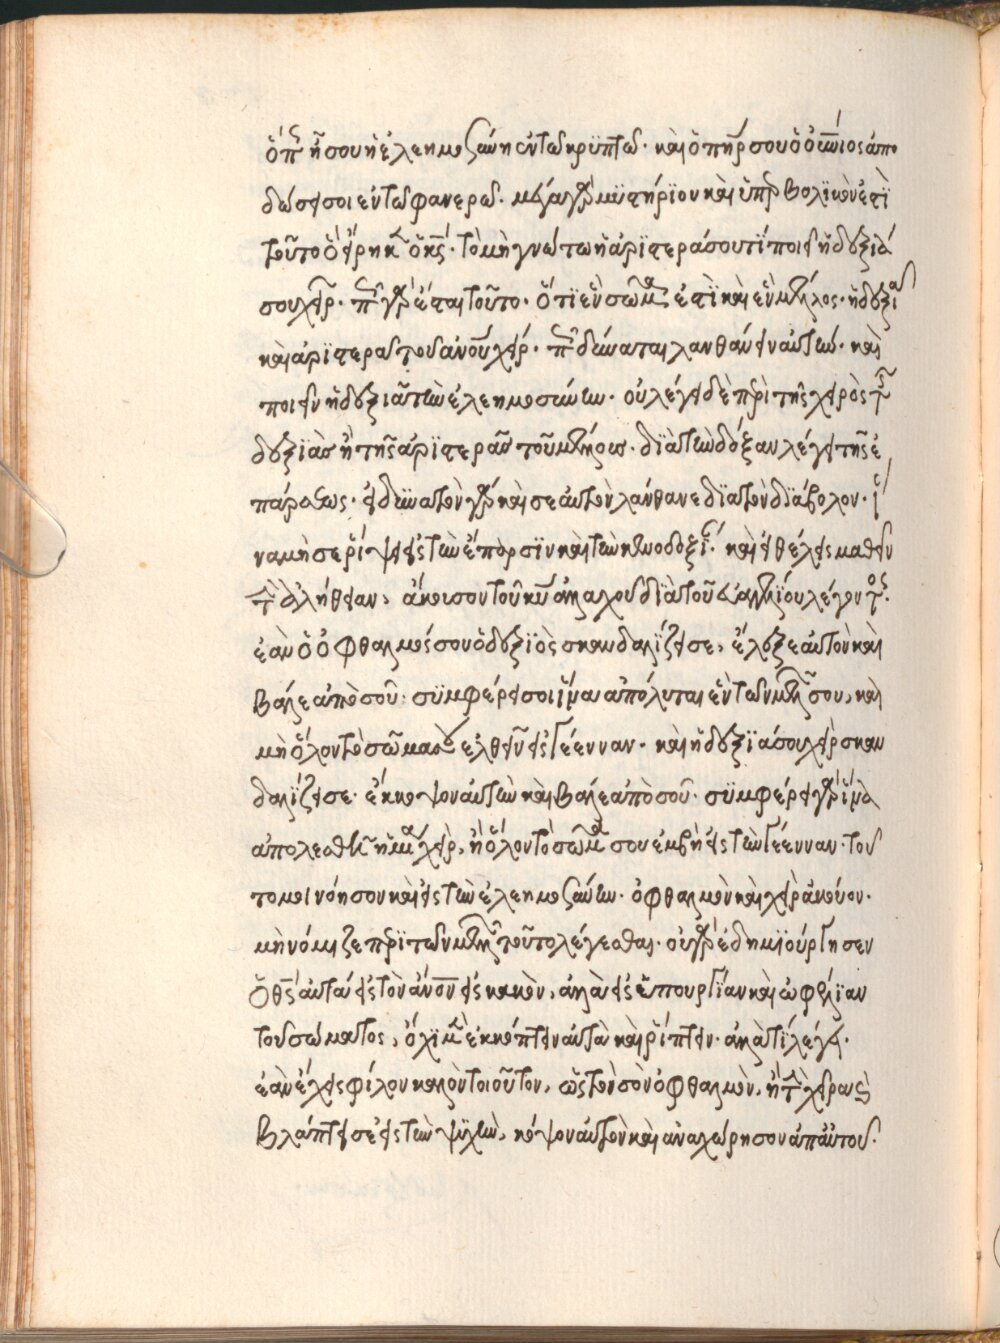 ὅπ ἦ σου ἡ ἐλεημοσύνη ἐν τῶ κρϋπτῶ· καὶ ὁ πηρ σου ὁ οὐνιος ἀπο
δώσει σοι ἐν τῶ φανερῶ. μέγα γὰρ μϋστήριον καὶ ὑπερβολϊκὸν ἐστὶ
τοῦτο ὃ εἴρηκεν ὁ κς· τὸ μὴ γνώτω ἡ ἀρϊστερά σου τί ποιεῖ ἡ δεξιὰ
σου χεὶρ. γὰρ ἐσται τοῦτο. ὅτι ἐν σῶμα ἐστὶ καὶ ἐν μέλος. ἡ δεξιὰ
καὶ ἀρϊστερὰ τοῦ ἀνου χείρ. πῶς δύναται λανθάνειν αὐτὴν. καὶ
ποιεῖν ἡ δεξιὰ τὴν ἐλεημοσύνην. οὐ λέγει δὲ περὶ τῆς χειρὸς τῆς
δεξιὰς ἢ τῆς ἀρϊστερὰς τοῦ μέλους. δϊὰ τὴν δόξαν λέγει τῆς ἐ
πάρσεως. εἰ δύνατον γὰρ καὶ σεαὐτὸν λάνθανε δϊὰ τὸν δϊάβολον. ἵ
να μὴ σε ῥίψει εἰς τὴν ἔπαρσϊν καὶ τὴν κενοδοξίαν. καὶ εἰ θέλεις μαθεῖν
τὴν ἀλήθειαν, ἄκουσον τοῦ κυ ἀλλαχοῦ δϊὰ τοῦ εὐαγγελίου λέγοντος.
ἐὰν ὁ ὀφθαλμός σου ὁ δεξϊὸς σκανδαλίζει σε, ἔλεξε αὐτὸν καὶ
βάλε ἀπὸ σοῦ· σϋμφέρει σοι ἵνα ἀπόλυται ἓν τῶν μελῶν σου, καὶ
μὴ ὅλον τὸ σῶμα σου ἐλθεῖν εἰς γέενναν. καὶ ἡ δεξϊά σου χεὶρ σκαν
δαλίζει σε. ἔκκοψον αὐτὴν καὶ βάλε ἀπὸ σοῦ. σϋμφέρει γὰρ ἵνα
ἀπολεσθῆ ἡ μία χεὶρ, ἢ ὅλον τὸ σῶμα σου ἐμβῆ εἰς τὴν γέενναν. τοῦ
το μοι νόησον καὶ εἰς τὴν ἐλεημοσύνην. ὀφθαλμὸν καὶ χεῖρα ἀκούων.
μὴ νόμιζε περὶ τῶν μελῶν τοῦτο λέγεσθαι. οὐ γὰρ ἐδημϊούργησεν
ὁ θς αὐτὰ εἰς τὸν ἀνον εἰς κακὸν, ἀλλὰ εἰς ὑπουργίαν καὶ ὠφέλϊαν
τοῦ σώματος, ὀχϊ μὲν ἐκκόπτειν αὐτὰ καὶ ῥίπτειν. ἀλλὰ τί λέγει.
ἐὰν ἔχεις φίλον κακὸν τοιοῦτον, ὡς τὸν σὸν ὀφθαλμὸν, ἢ τὴν χεῖρα καὶ
βλάπτει σε εἰς τὴν ψϋχὴν, κόψον αὐτὸν καὶ ἀναχώρησον ἀπ αὐτοῦ.